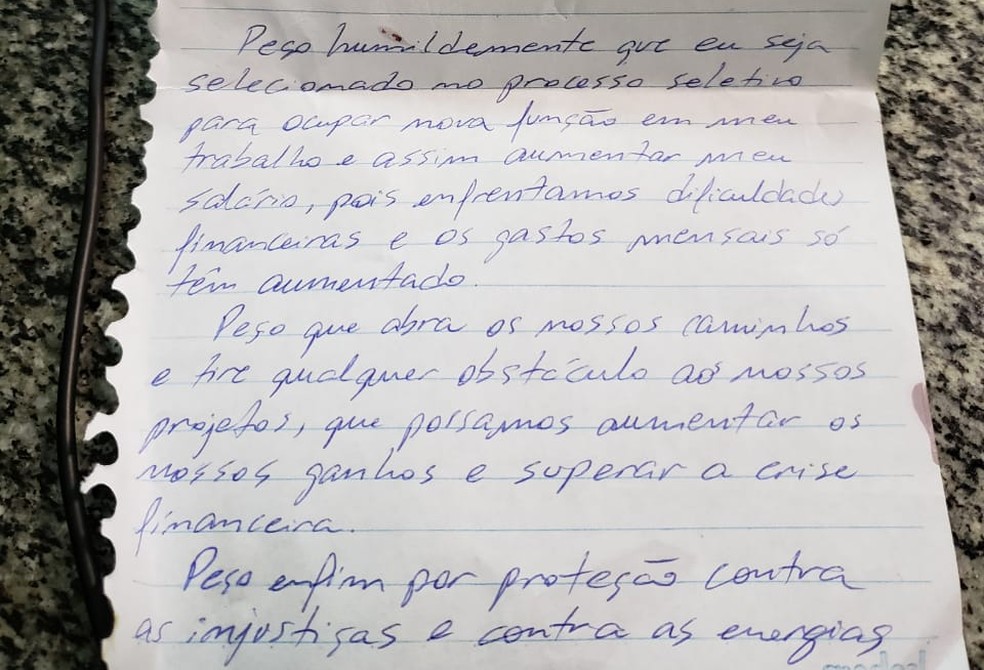 Peço humildemente que eu seja
selecionado no processo seletivo
para ocupar nova função em meu
trabalho e assim aumentar meu
salário, pois enfrentamos dificuldades
financeiras e os gastos mensais só
têm aumentado.
Peço que abra os nossos caminhos
e tire qualquer obstáculo aos nossos
projetos, que possamos aumentar os
nossos ganhos e superar a crise
financeira.
Peço enfim por proteção contra
as injustiças e contra as energias